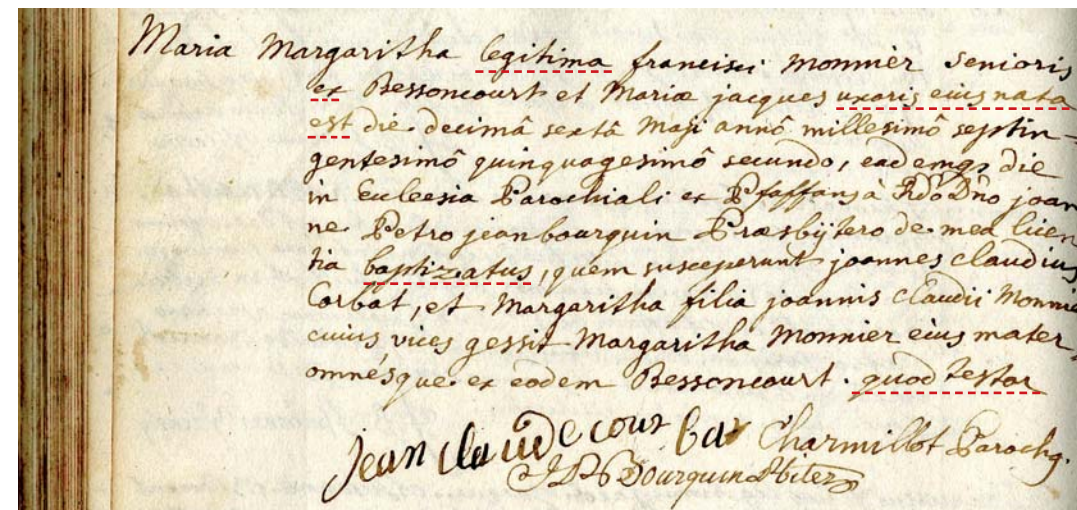 Maria Margaritha legitima francisci Monnier senioris
ex Bessoncourt et Mariæ jacques uxoris eius nata
est die decimâ sextâ Maji annô millesimô septin=
gentesimô quinquagesimô secundo, eademqz die
in Ecclesia Parochiali ex Pfaffans à Rdo Dno joan
ne Petro jeanbourquin Præsbÿtero de mea licen
tia baptizatus, quem susceperunt joannes claudius
Corbat, et Margaritha filia joannis claudii Monnie
cuius vices gessit Margaritha Monnier eius mater,
omnésque ex eodem Bessoncourt. quod testor
Jean claude cour bat Charmillot Parochq.
Bourquin Pbiter